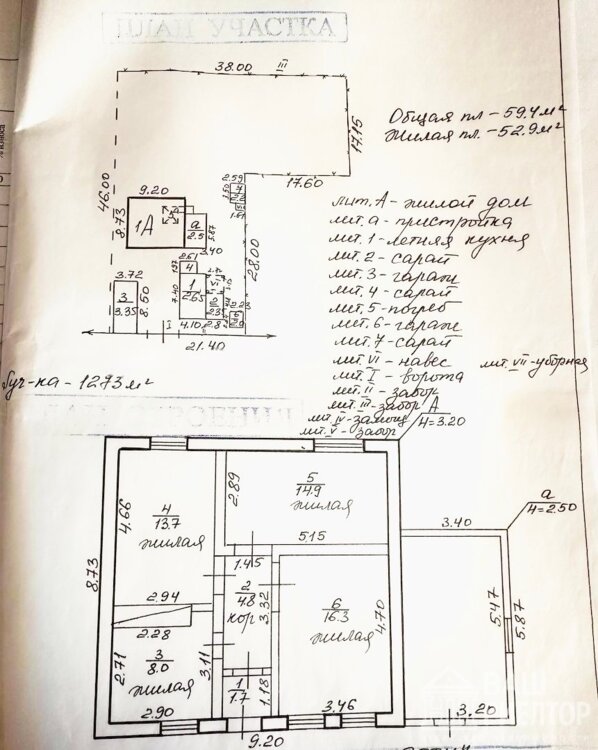 ПЛАН УЧАСТКА
38.00
III
Общая пл - 59.4 м²
Жилая пл. - 52.9 м²
17.15
17.60
46.00
9.20
8.73
1А
а
2.5
5.87
3.40
2.59
28.00
лит. А - жилой дом
лит. а - пристройка
лит. 1 - летняя кухня
лит. 2 - сарай
лит. 3 - гараж
лит. 4 - сарай
лит. 5 - погреб
лит. 6 - гараж
лит. 7 - сарай
лит. VI - навес
лит. VII - уборная
лит. I - ворота
лит. II - забор
лит. III - забор
лит. IV - замощ
лит. V - забор
3.72
3
3.35
8.50
2.61
4
1
2.65
7.40
2.35
4.10
2.8
I
21.40
Sуч-ка - 1273 м²
А
H=3.20
а
H=2.50
4.66
4
13.7
жилая
2.94
2.89
5
14.9
жилая
5.15
8.73
1.45
2
4.8
кор
3.32
6
16.3
жилая
4.70
3.40
5.47
5.87
2.28
2.71
3
8.0
жилая
3.11
2.90
1
1.7
1.18
3.46
9.20
3.20
ВАШ
РИЕЛТОР